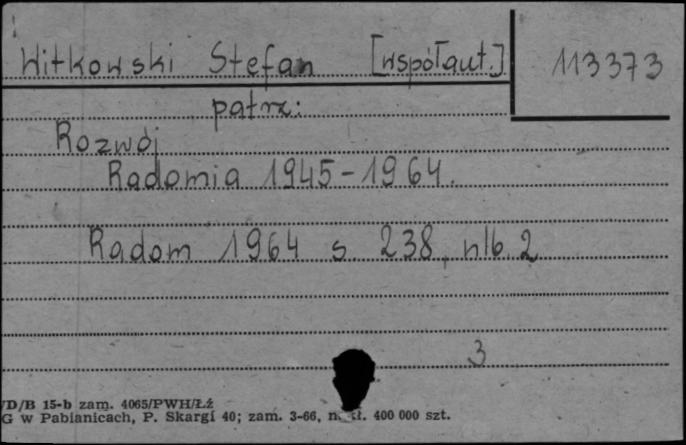 Witkowski Stefan [współaut.]
113373
patrz:
Rozwój
Radomia 1945-1964.
Radom 1964 s. 238, nlb. 2
3
/D/B 15-b zam. 4065/PWH/Łź
G w Pabianicach, P. Skargi 40; zam. 3-66, 400 000 szt.